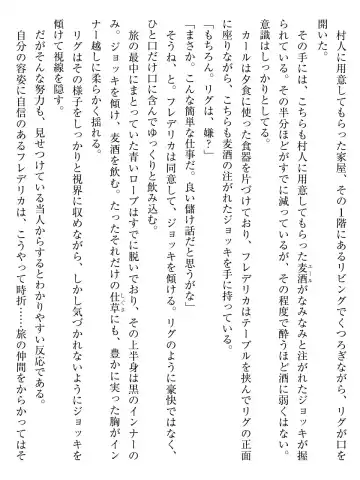 村人に用意してもらった家屋、その１階にあるリビングでくつろぎながら、リグが口を
開いた。
　その手には、こちらも村人に用意してもらった麦酒エールがなみなみと注がれたジョッキが握
られている。その半分ほどがすでに減っているが、その程度で酔うほど酒に弱くはない。
意識はしっかりとしてる。
　カールは夕食に使った食器を片づけており、フレデリカはテーブルを挟んでリグの正面
に座りながら、こちらも麦酒の注がれたジョッキを手に持っている。
「もちろん。リグは、嫌？」
「まさか。こんな簡単な仕事だ。良い儲け話だと思うがな」
　そうね、と。フレデリカは同意して、ジョッキを傾ける。リグのように豪快ではなく、
ひと口だけ口に含んでゆっくりと飲み込む。
　旅の最中にまとっていた青いローブはすでに脱いでおり、その上半身は黒のインナーの
み。ジョッキを傾け、麦酒を飲む。たったそれだけの仕草しぐさにも、豊かに実った胸がイン
ナー越しに柔らかく揺れる。
　リグはその様子をしっかりと視界に収めながら、しかし気づかれないようにジョッキを
傾けて視線を隠す。
　だがそんな努力も、見せつけている当人からするとわかりやすい反応である。
　自分の容姿に自信のあるフレデリカは、こうやって時折……旅の仲間をからかってはそ